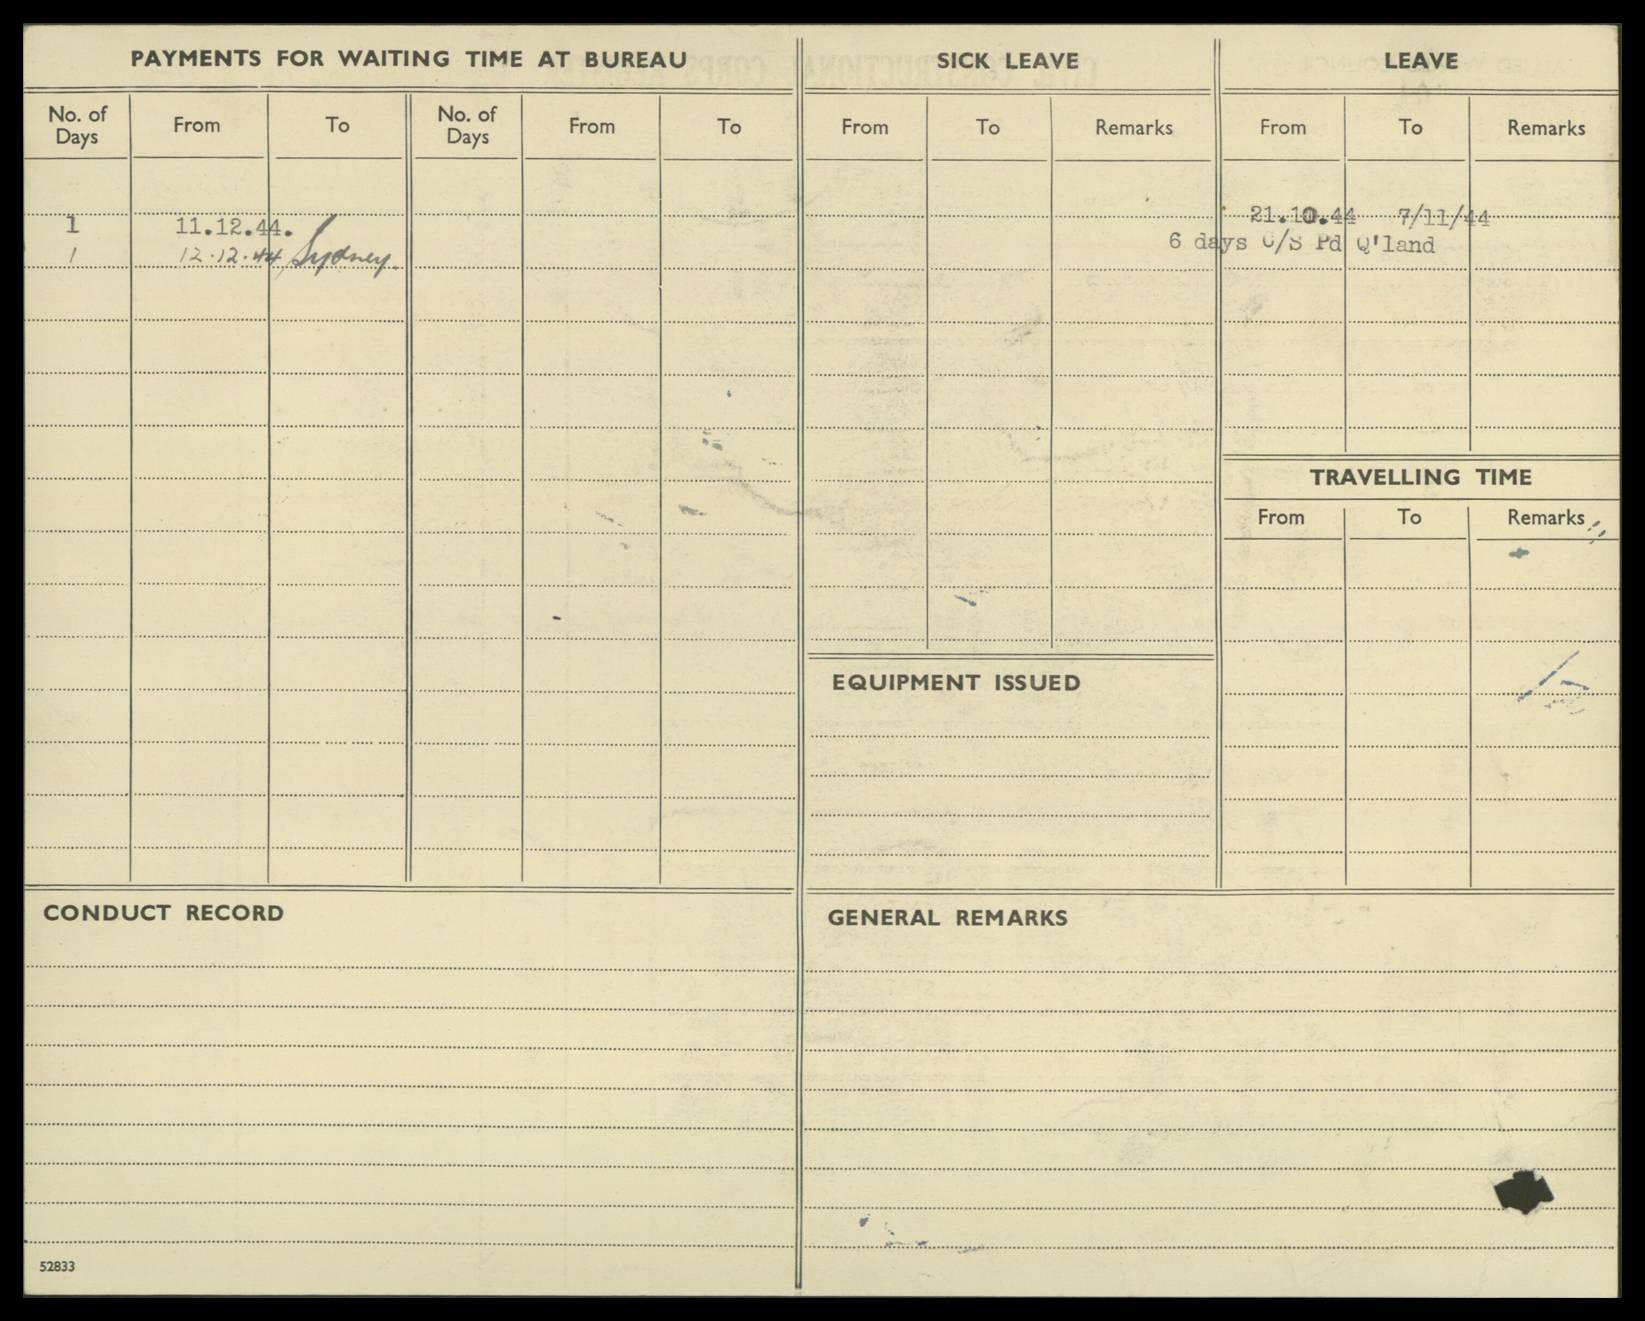 PAYMENTS FOR WAITING TIME AT BUREAU
No. of Days From To No. of Days From To
1 11.12.44.
1 12.12.44 Sydney.
SICK LEAVE
From To Remarks
LEAVE
From To Remarks
21.10.44 7/11/44
6 days C/S Pd Q'land
TRAVELLING TIME
From To Remarks
EQUIPMENT ISSUED
CONDUCT RECORD
GENERAL REMARKS
52833